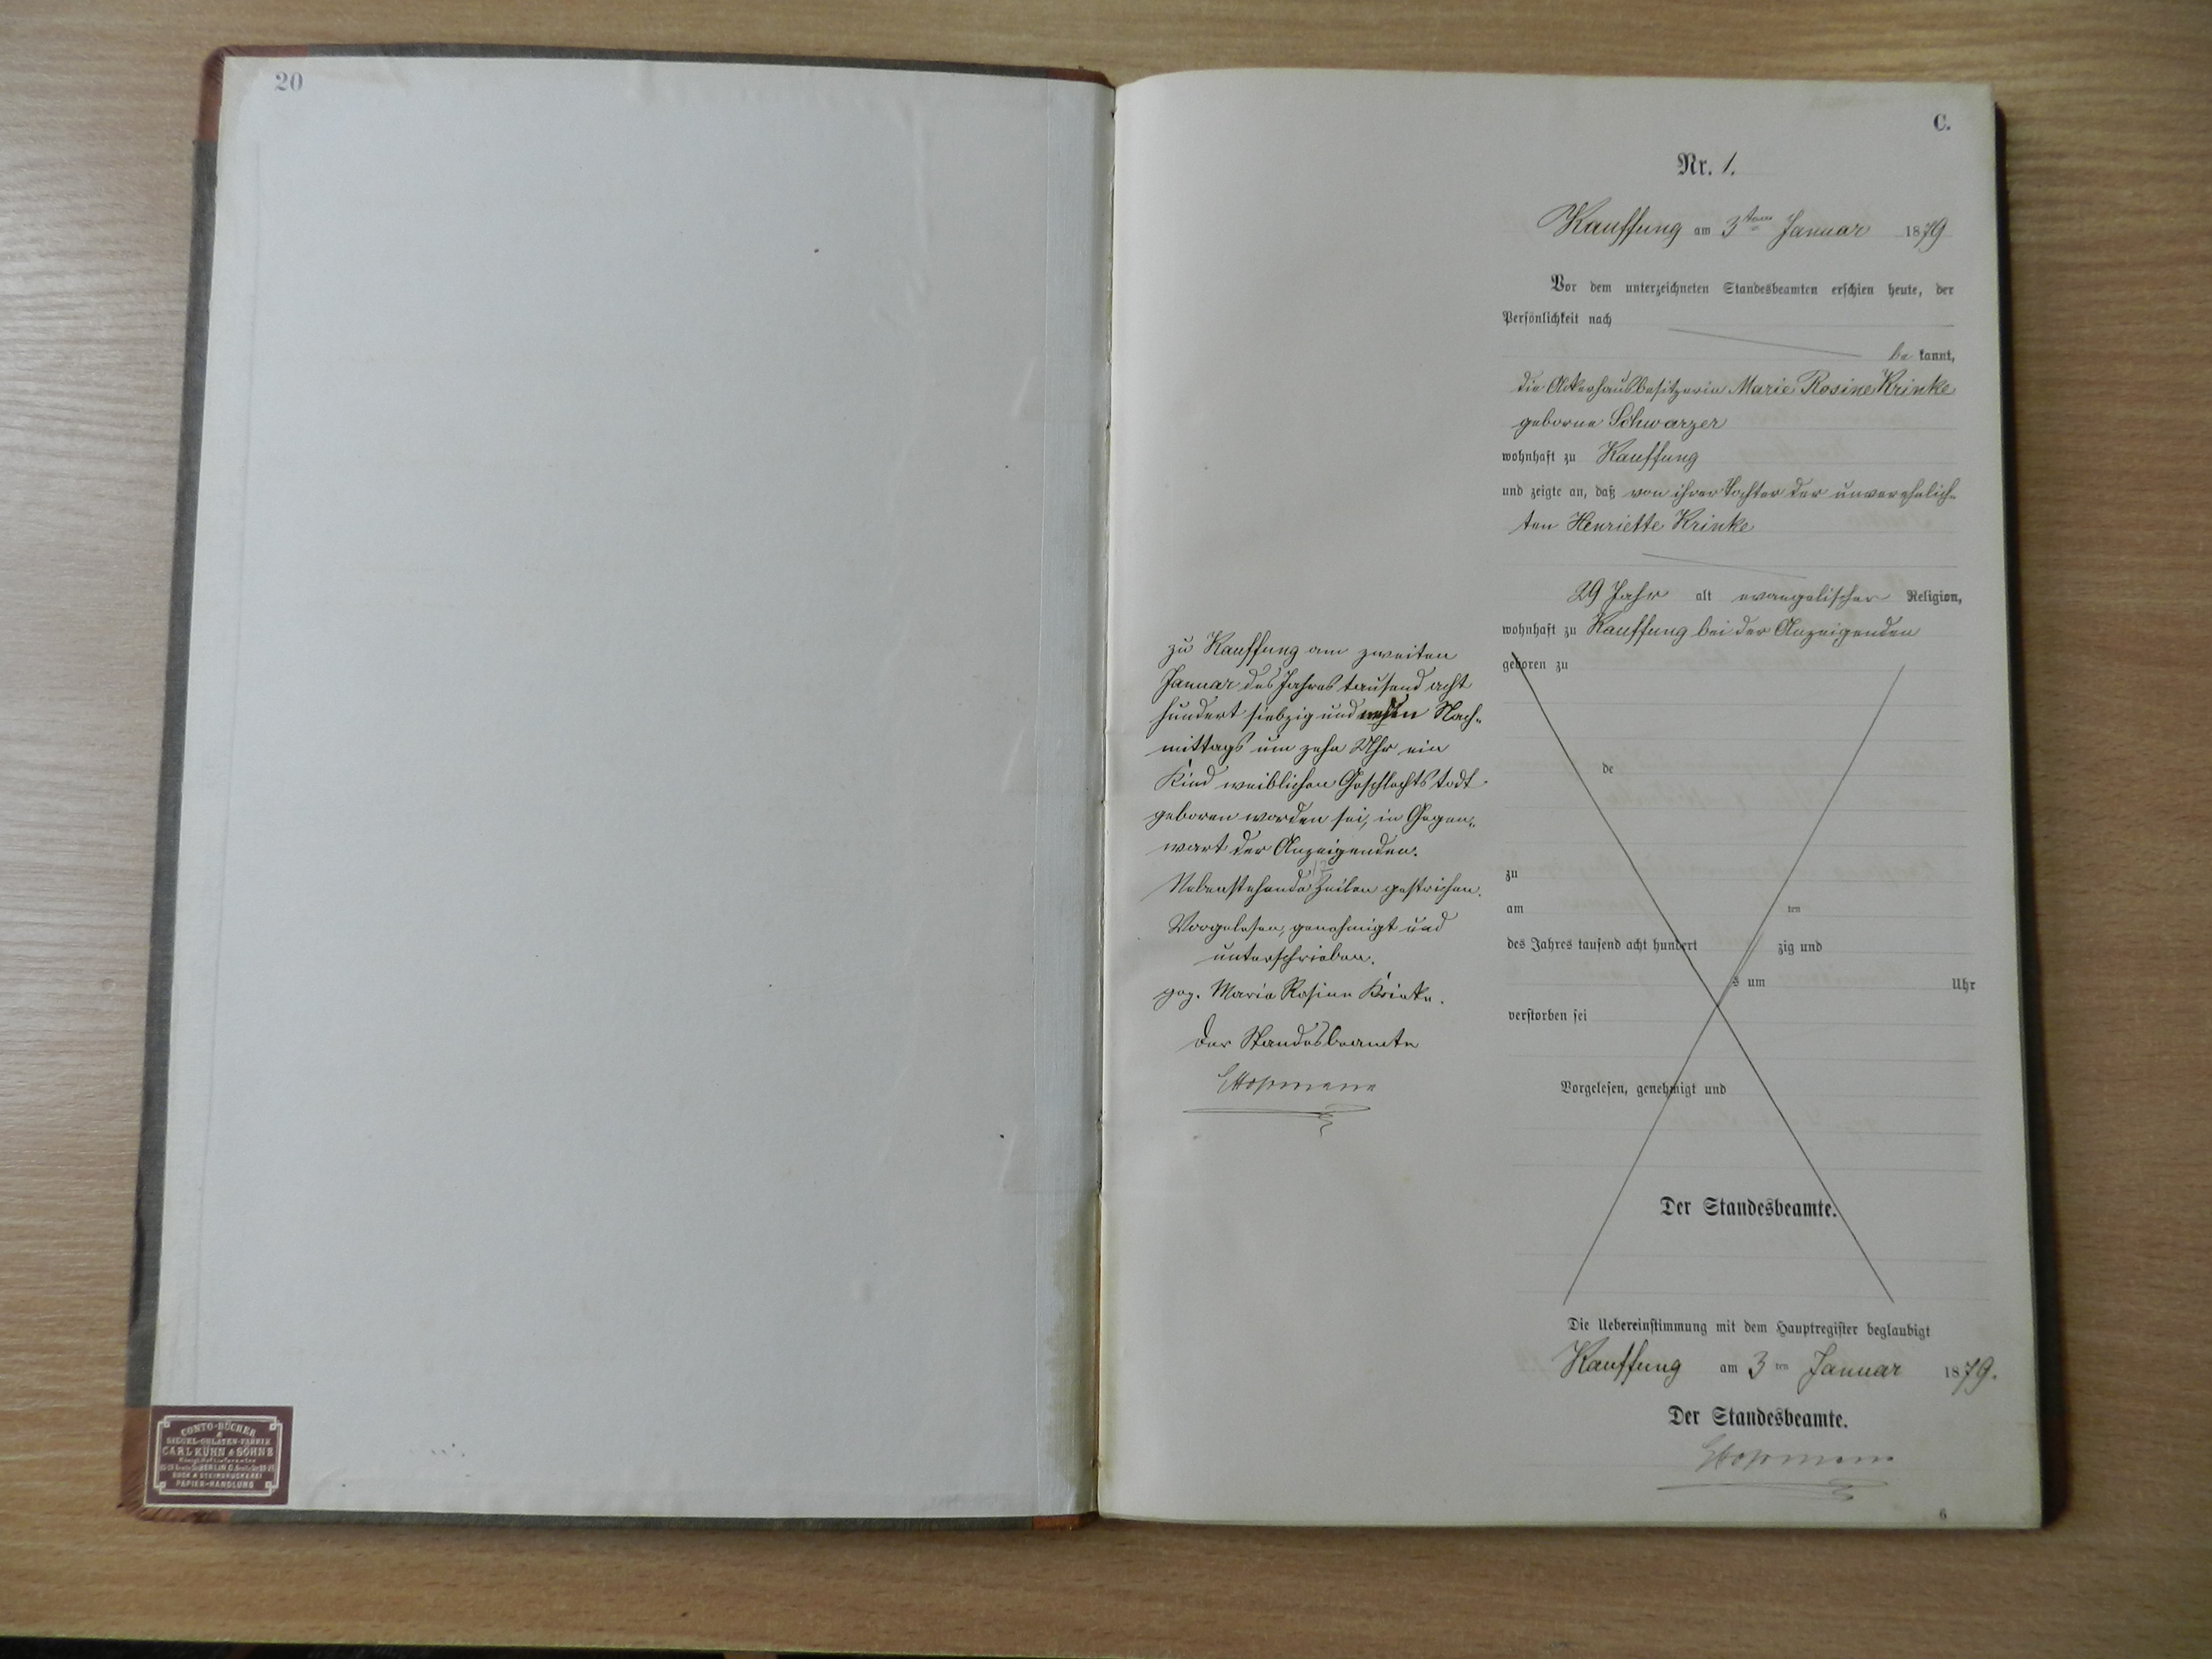 20
CONTO-BÜCHER
&
SIEGEL-OBLATEN-FABRIK
CARL KÜHN & SÖHNE
Königl. Hoflieferanten
BERLIN C.
BUCH & STEINDRUCKEREI
PAPIER-HANDLUNG
C.
Nr. 1.
Kauffung am 3ten Januar 1879
Vor dem unterzeichneten Standesbeamten erschien heute, der
Persönlichkeit nach
be kannt,
die Ackerhausbesitzerin Marie Rosine Krinke
geborne Schwarzer
wohnhaft zu Kauffung
und zeigte an, daß von ihrer Tochter der unverehelich-
ten Henriette Krinke
29 Jahr alt evangelischer Religion,
wohnhaft zu Kauffung bei der Anzeigenden
geboren zu
de
zu
am ten
des Jahres tausend acht hundert zig und
s um Uhr
verstorben sei
Vorgelesen, genehmigt und
Der Standesbeamte.
zu Kauffung am zweiten
Januar des Jahres tausend acht
hundert siebzig und neun Nach-
mittags um zehn Uhr ein
Kind weiblichen Geschlechts todt
geboren worden sei, in Gegen-
wart der Anzeigenden.
Nebenstehende Zeilen gestrichen.
Vorgelesen, genehmigt und
unterschrieben.
gez. Marie Rosine Krinke.
Der Standesbeamte
Die Uebereinstimmung mit dem Hauptregister beglaubigt
Kauffung am 3 ten Januar 1879.
Der Standesbeamte.
6